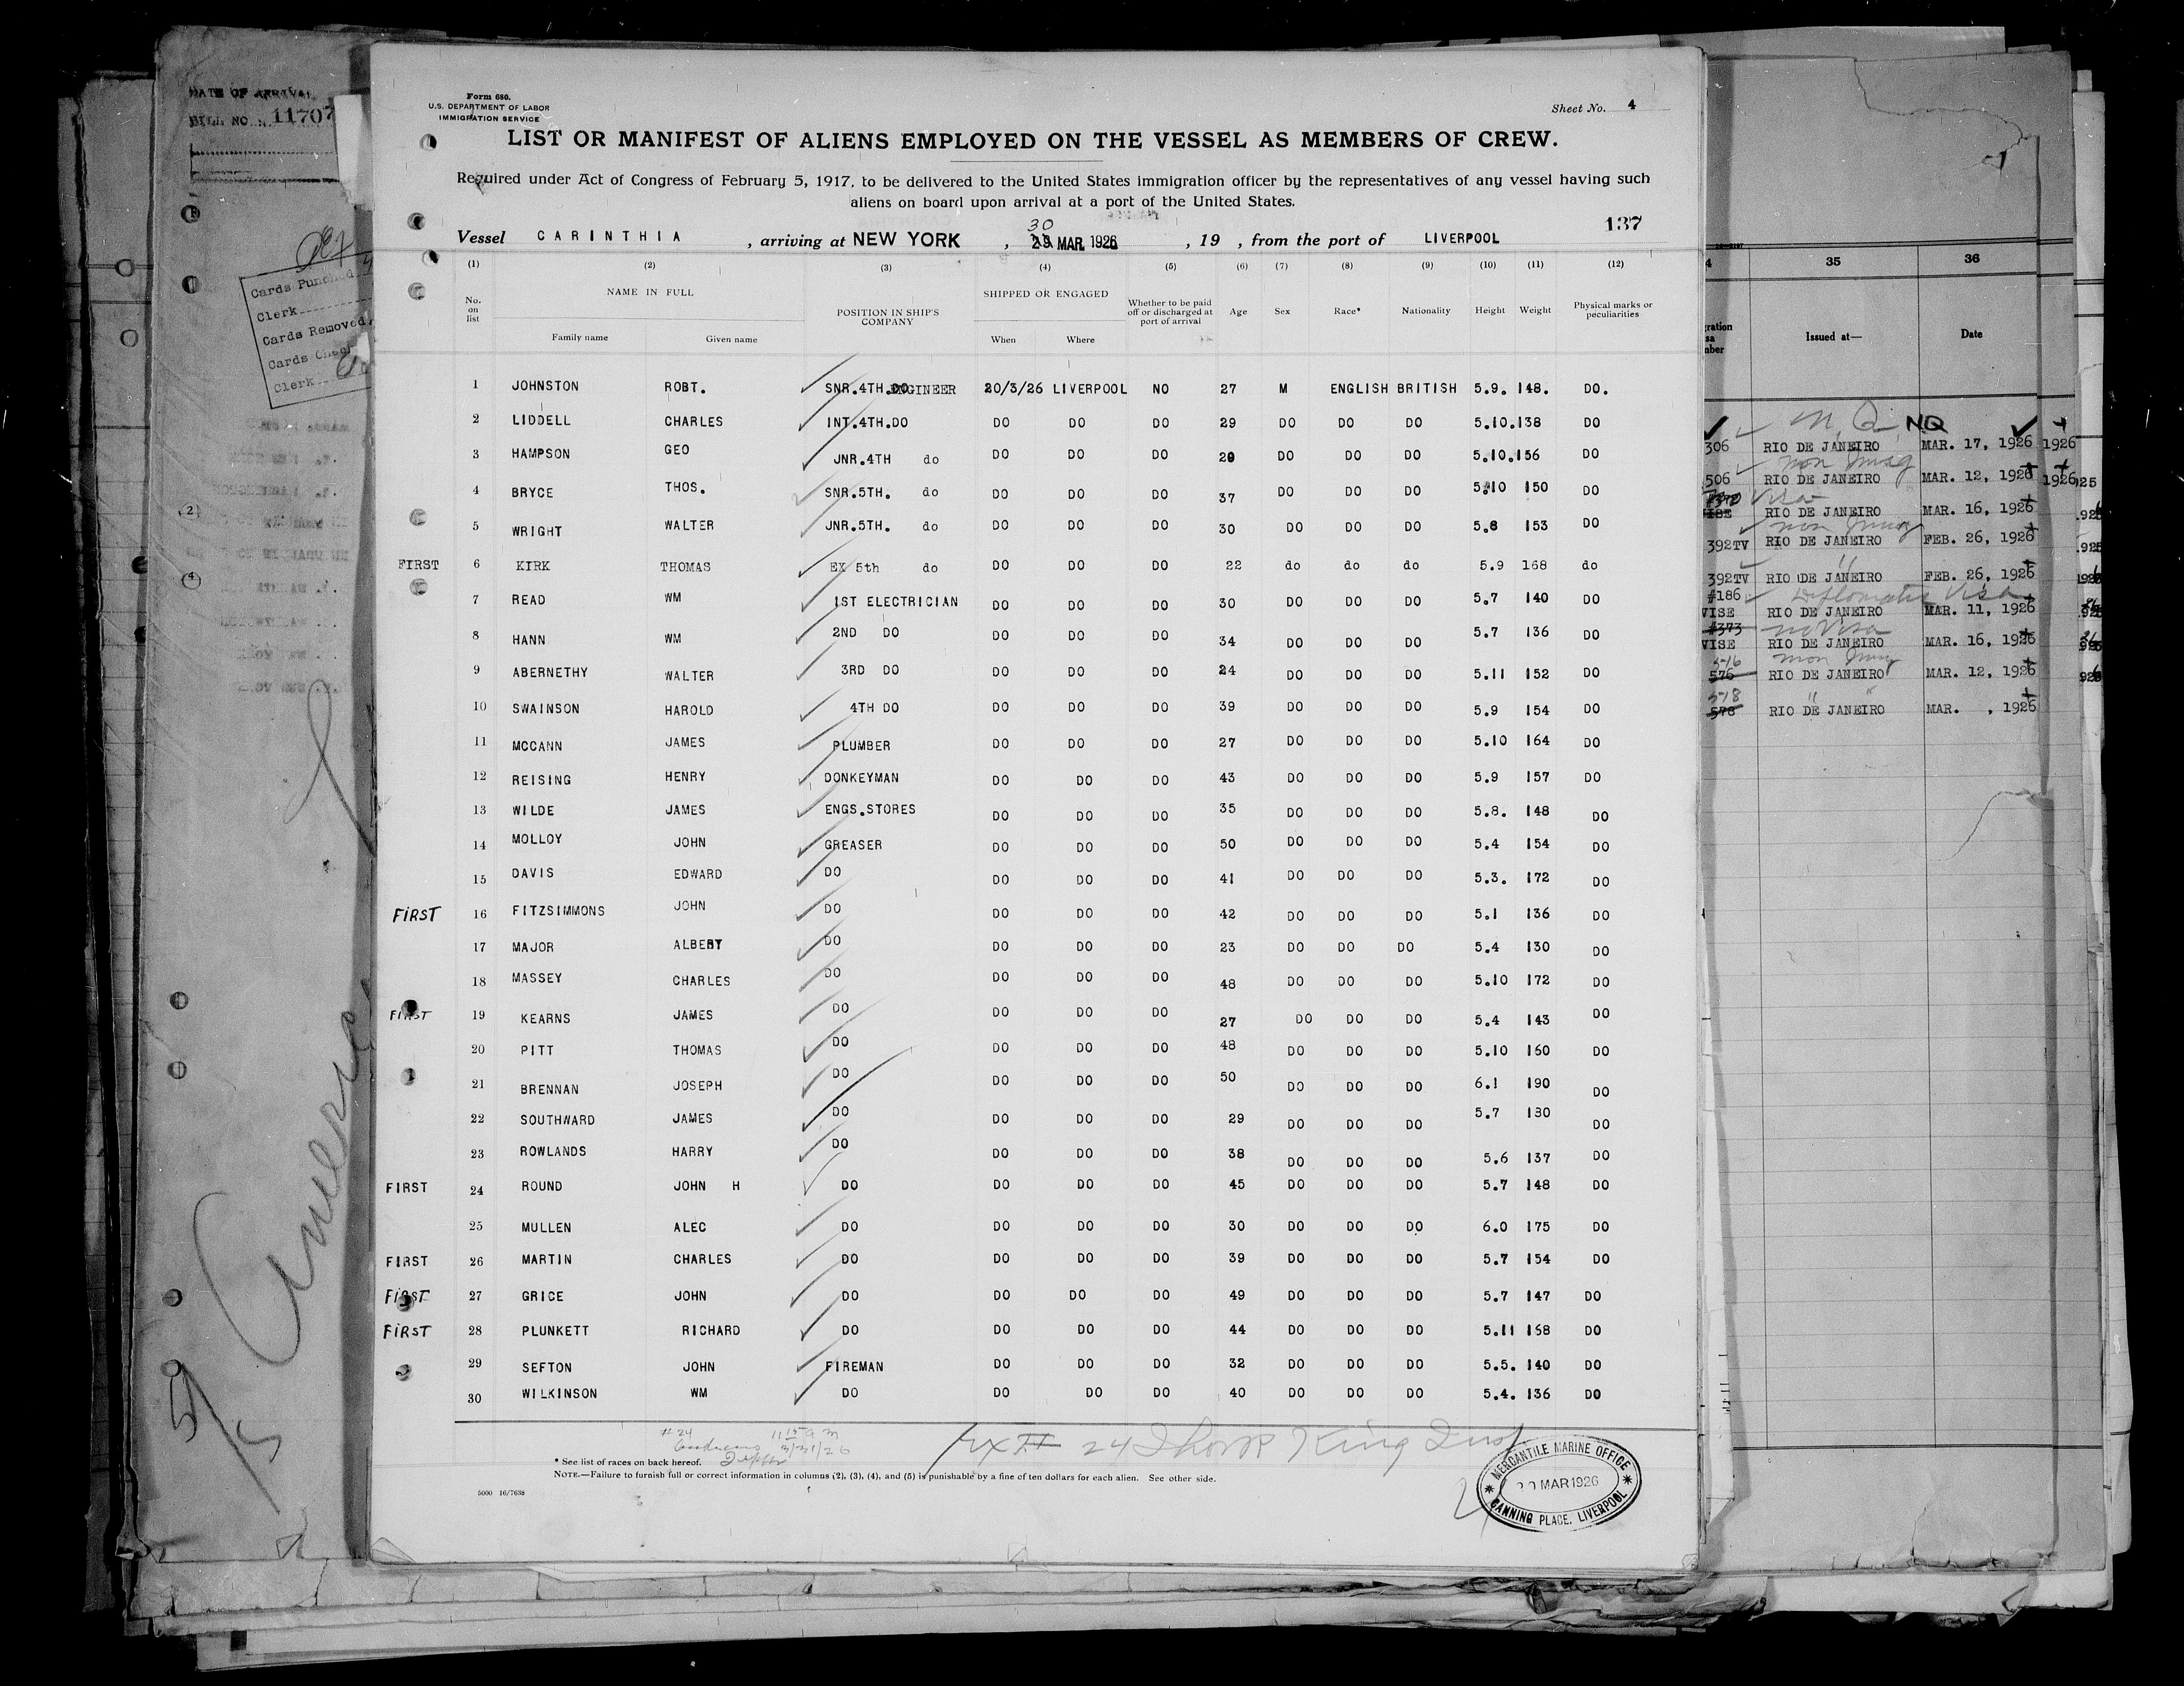 DATE OF ARRIVAL
BILL NO. 11707
Cards Punched
Clerk
Cards Removed
Cards
Clerk
Form 680.
U.S. DEPARTMENT OF LABOR
IMMIGRATION SERVICE
Sheet No. 4
LIST OR MANIFEST OF ALIENS EMPLOYED ON THE VESSEL AS MEMBERS OF CREW.
Required under Act of Congress of February 5, 1917, to be delivered to the United States immigration officer by the representatives of any vessel having such
aliens on board upon arrival at a port of the United States.
137
30
Vessel CARINTHIA , arriving at NEW YORK , 29 MAR 1926 , 19 , from the port of LIVERPOOL
(1) (2) (3) (4) (5) (6) (7) (8) (9) (10) (11) (12)
No. on list NAME IN FULL POSITION IN SHIP'S COMPANY SHIPPED OR ENGAGED Whether to be paid off or discharged at port of arrival Age Sex Race* Nationality Height Weight Physical marks or peculiarities
Family name Given name When Where
1 JOHNSTON ROBT. SNR.4TH.ENGINEER 20/3/26 LIVERPOOL NO 27 M ENGLISH BRITISH 5.9. 148. DO.
2 LIDDELL CHARLES INT.4TH.DO DO DO DO 29 DO DO DO 5.10.138 DO
3 HAMPSON GEO JNR.4TH do DO DO DO 29 DO DO DO 5.10.156 DO
4 BRYCE THOS. SNR.5TH. do DO DO DO 37 DO DO DO 5.10 150 DO
5 WRIGHT WALTER JNR.5TH. do DO DO DO 30 DO DO DO 5.8 153 DO
FIRST 6 KIRK THOMAS EX 5th do DO DO DO 22 do do do 5.9 168 do
7 READ WM 1ST ELECTRICIAN DO DO DO 30 DO DO DO 5.7 140 DO
8 HANN WM 2ND DO DO DO DO 34 DO DO DO 5.7 136 DO
9 ABERNETHY WALTER 3RD DO DO DO DO 24 DO DO DO 5.11 152 DO
10 SWAINSON HAROLD 4TH DO DO DO DO 39 DO DO DO 5.9 154 DO
11 MCCANN JAMES PLUMBER DO DO DO 27 DO DO DO 5.10 164 DO
12 REISING HENRY DONKEYMAN DO DO DO 43 DO DO DO 5.9 157 DO
13 WILDE JAMES ENGS.STORES DO DO DO 35 DO DO DO 5.8. 148 DO
14 MOLLOY JOHN GREASER DO DO DO 50 DO DO DO 5.4 154 DO
15 DAVIS EDWARD DO DO DO DO 41 DO DO DO 5.3. 172 DO
FIRST 16 FITZSIMMONS JOHN DO DO DO DO 42 DO DO DO 5.1 136 DO
17 MAJOR ALBERT DO DO DO DO 23 DO DO DO 5.4 130 DO
18 MASSEY CHARLES DO DO DO DO 48 DO DO DO 5.10 172 DO
FIRST 19 KEARNS JAMES DO DO DO DO 27 DO DO DO 5.4 143 DO
20 PITT THOMAS DO DO DO DO 48 DO DO DO 5.10 160 DO
21 BRENNAN JOSEPH DO DO DO DO 50 DO DO DO 6.1 190 DO
22 SOUTHWARD JAMES DO DO DO DO 29 DO DO DO 5.7 130 DO
23 ROWLANDS HARRY DO DO DO DO 38 DO DO DO 5.6 137 DO
FIRST 24 ROUND JOHN H DO DO DO DO 45 DO DO DO 5.7 148 DO
25 MULLEN ALEC DO DO DO DO 30 DO DO DO 6.0 175 DO
FIRST 26 MARTIN CHARLES DO DO DO DO 39 DO DO DO 5.7 154 DO
FIRST 27 GRICE JOHN DO DO DO DO 49 DO DO DO 5.7 147 DO
FIRST 28 PLUNKETT RICHARD DO DO DO DO 44 DO DO DO 5.11 168 DO
29 SEFTON JOHN FIREMAN DO DO DO 32 DO DO DO 5.5. 140 DO
30 WILKINSON WM DO DO DO DO 40 DO DO DO 5.4. 136 DO
#24 1115 a m
3/31/26
24
* See list of races on back hereof.
NOTE.—Failure to furnish full or correct information in columns (2), (3), (4), and (5) is punishable by a fine of ten dollars for each alien. See other side.
5000 16/7638
MERCANTILE MARINE OFFICE
MAR 1926
CANNING PLACE, LIVERPOOL
35 36
Issued at— Date
N.Q. NQ
306 RIO DE JANEIRO MAR. 17, 1926 1926
non Immig
506 RIO DE JANEIRO MAR. 12, 1926 1926
Visa
RIO DE JANEIRO MAR. 16, 1926
non Immig
392TV RIO DE JANEIRO FEB. 26, 1926
392TV RIO DE JANEIRO FEB. 26, 1926
#186 Diplomatic Visa
VISE RIO DE JANEIRO MAR. 11, 1926
#373 no Visa
VISE RIO DE JANEIRO MAR. 16, 1926
576 RIO DE JANEIRO MAR. 12, 1926
578 RIO DE JANEIRO MAR. , 1926